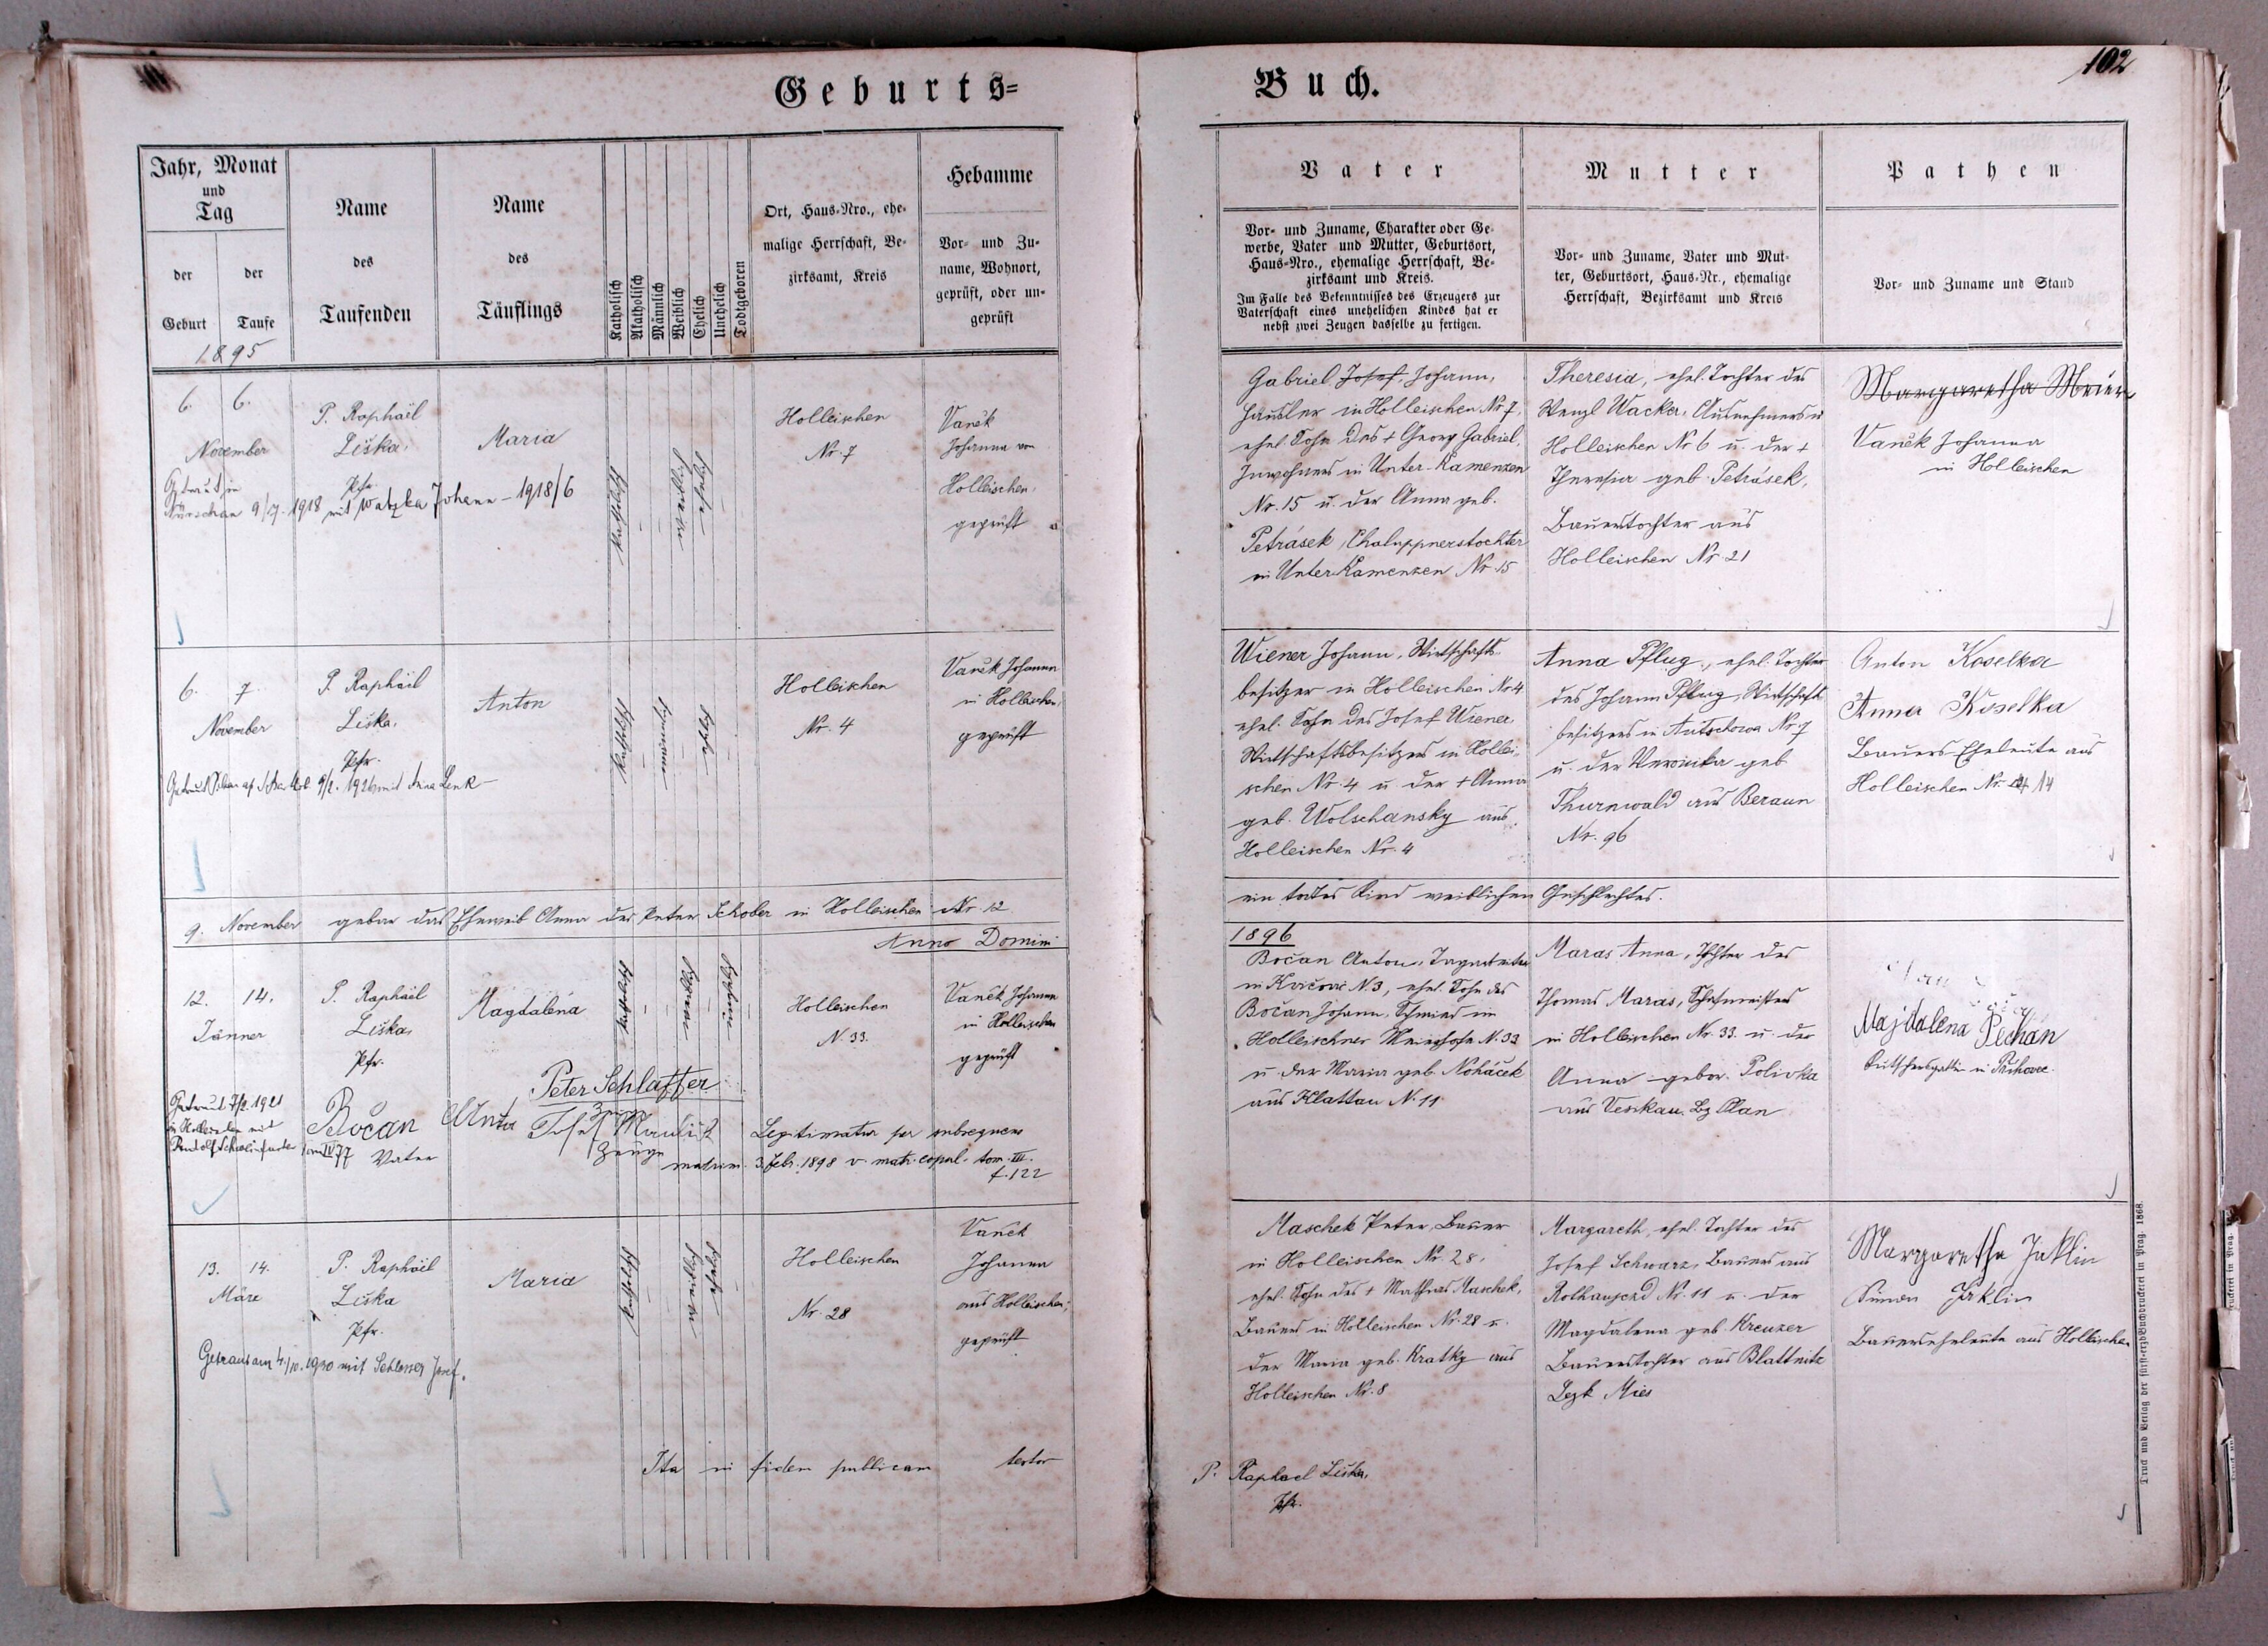 102
Geburts=
Buch.
Jahr, Monat
und
Tag
der
Geburt
der
Taufe
1895
Name
des
Taufenden
Name
des
Täuflings
Katholisch
Akatholisch
Männlich
Weiblich
Ehelich
Unehelich
Todtgeboren
Ort, Haus-Nro., ehe-
malige Herrschaft, Be-
zirksamt, Kreis
Hebamme
Vor- und Zu-
name, Wohnort,
geprüft, oder un-
geprüft
Vater
Vor- und Zuname, Charakter oder Ge-
werbe, Vater und Mutter, Geburtsort,
Haus-Nro., ehemalige Herrschaft, Be-
zirksamt und Kreis.
Im Falle des Bekenntnisses des Erzeugers zur
Vaterschaft eines unehelichen Kindes hat er
nebst zwei Zeugen dasselbe zu fertigen.
Mutter
Vor- und Zuname, Vater und Mut-
ter, Geburtsort, Haus-Nr., ehemalige
Herrschaft, Bezirksamt und Kreis
Pathen
Vor- und Zuname und Stand
6. 6.
November
P. Raphaël
Liška,
Pfr.
Maria
Getraut in
Nürschan 9/7. 1918 mit Watzka Johann - 1918/6
katholisch
weiblich
ehelich
Holleischen
Nr. 7
Vaněk
Johanna von
Holleischen,
geprüft
Gabriel Josef, Johann,
Häusler in Holleischen Nr 7,
ehel. Sohn des + Georg Gabriel,
Inwohners in Unter-Kamenzen
Nr. 15 u. der Anna geb.
Petrásek, Chaluppnerstochter
in Unter Kamenzen Nr. 15
Theresia, ehel. Tochter des
Wenzl Wacker, Ausnehmers in
Holleischen Nr 6 u. der +
Theresia geb. Petrásek,
Bauerstochter aus
Holleischen Nr. 21
Margaretha Meier
Vaněk Johanna
in Holleischen
6. 7.
November
P. Raphaël
Liška,
Pfr.
Anton
katholisch
männlich
ehelich
Holleischen
Nr. 4
Vaněk Johanna
in Holleischen,
geprüft
mit Anna Lenk
Wiener Johann, Wirtschafts-
besitzer in Holleischen Nr 4
ehel. Sohn des Josef Wiener
Wirtschaftsbesitzers in Hollei-
schen Nr. 4 u. der + Anna
geb. Wolschansky aus
Holleischen Nr. 4
Anna Pflug, ehel. Tochter
des Johann Pflug, Wirtschafts-
besitzers in Autschowa Nr. 7
u. der Veronika geb
Thurnwald aus Beraun
Nr. 96
Anton Koselka
Anna Koselka
Bauers Eheleute aus
Holleischen Nr. 14
9. November gebar das Eheweib Anna des Peter Schober in Holleischen Nr. 12
ein todtes Kind weiblichen Geschlechtes.
Anno Domini
1896
12. 14.
Jänner
P. Raphaël
Liška,
Pfr.
Magdaléna
katholisch
weiblich
unehelich
Holleischen
N. 33.
Vaněk Johanna
in Holleischen
geprüft
Getraut 7/2. 1921
in Holleischen mit
Bočan Anton
Vater
Peter Schlaffer
Josef
Zeuge
Legitimatur per subsequens
matrim. 3. Febr. 1898 v. matr. copul. tom. III.
f. 122
Bočan Anton, Tagarbeiter
N. 3, ehel. Sohn des
Bočan Johann, Schmied im
Holleischner Meierhofe N. 33
u. der Maria geb. Noháček
aus Klattau N. 11
Maras Anna, Tochter des
Thomas Maras, Schafmeisters
in Holleischen Nr. 33. u. der
Anna gebor. Polivka
aus Veskau, Bz Plan
Majdalena Pechan
Kutschersgattin in
13. 14.
März
P. Raphaël
Liška
Pfr.
Maria
katholisch
weiblich
ehelich
Holleischen
Nr. 28
Vaněk
Johanna
aus Holleischen;
geprüft
Getraut am 4./10. 1920 mit Schlosser Josef.
Maschek Peter, Bauer
in Holleischen Nr. 28,
ehel. Sohn des + Mathias Maschek,
Bauers in Holleischen Nr. 28 u.
der Maria geb. Kratky aus
Holleischen Nr. 8
Margareth, ehel. Tochter des
Josef Schwarz, Bauers aus
Rothaujezd Nr. 11 u. der
Magdalena geb. Kreuzer
Bauerstochter aus Blattnitz
Bezk Mies
Margaretha Jaklin
Simon Jaklin
Bauerseheleute aus Holleischen
Ita in fidem publicam testor
P. Raphael Liška,
Pfr.
Druck und Verlag der fürst-erzb. Buchdruckerei in Prag. 1868.